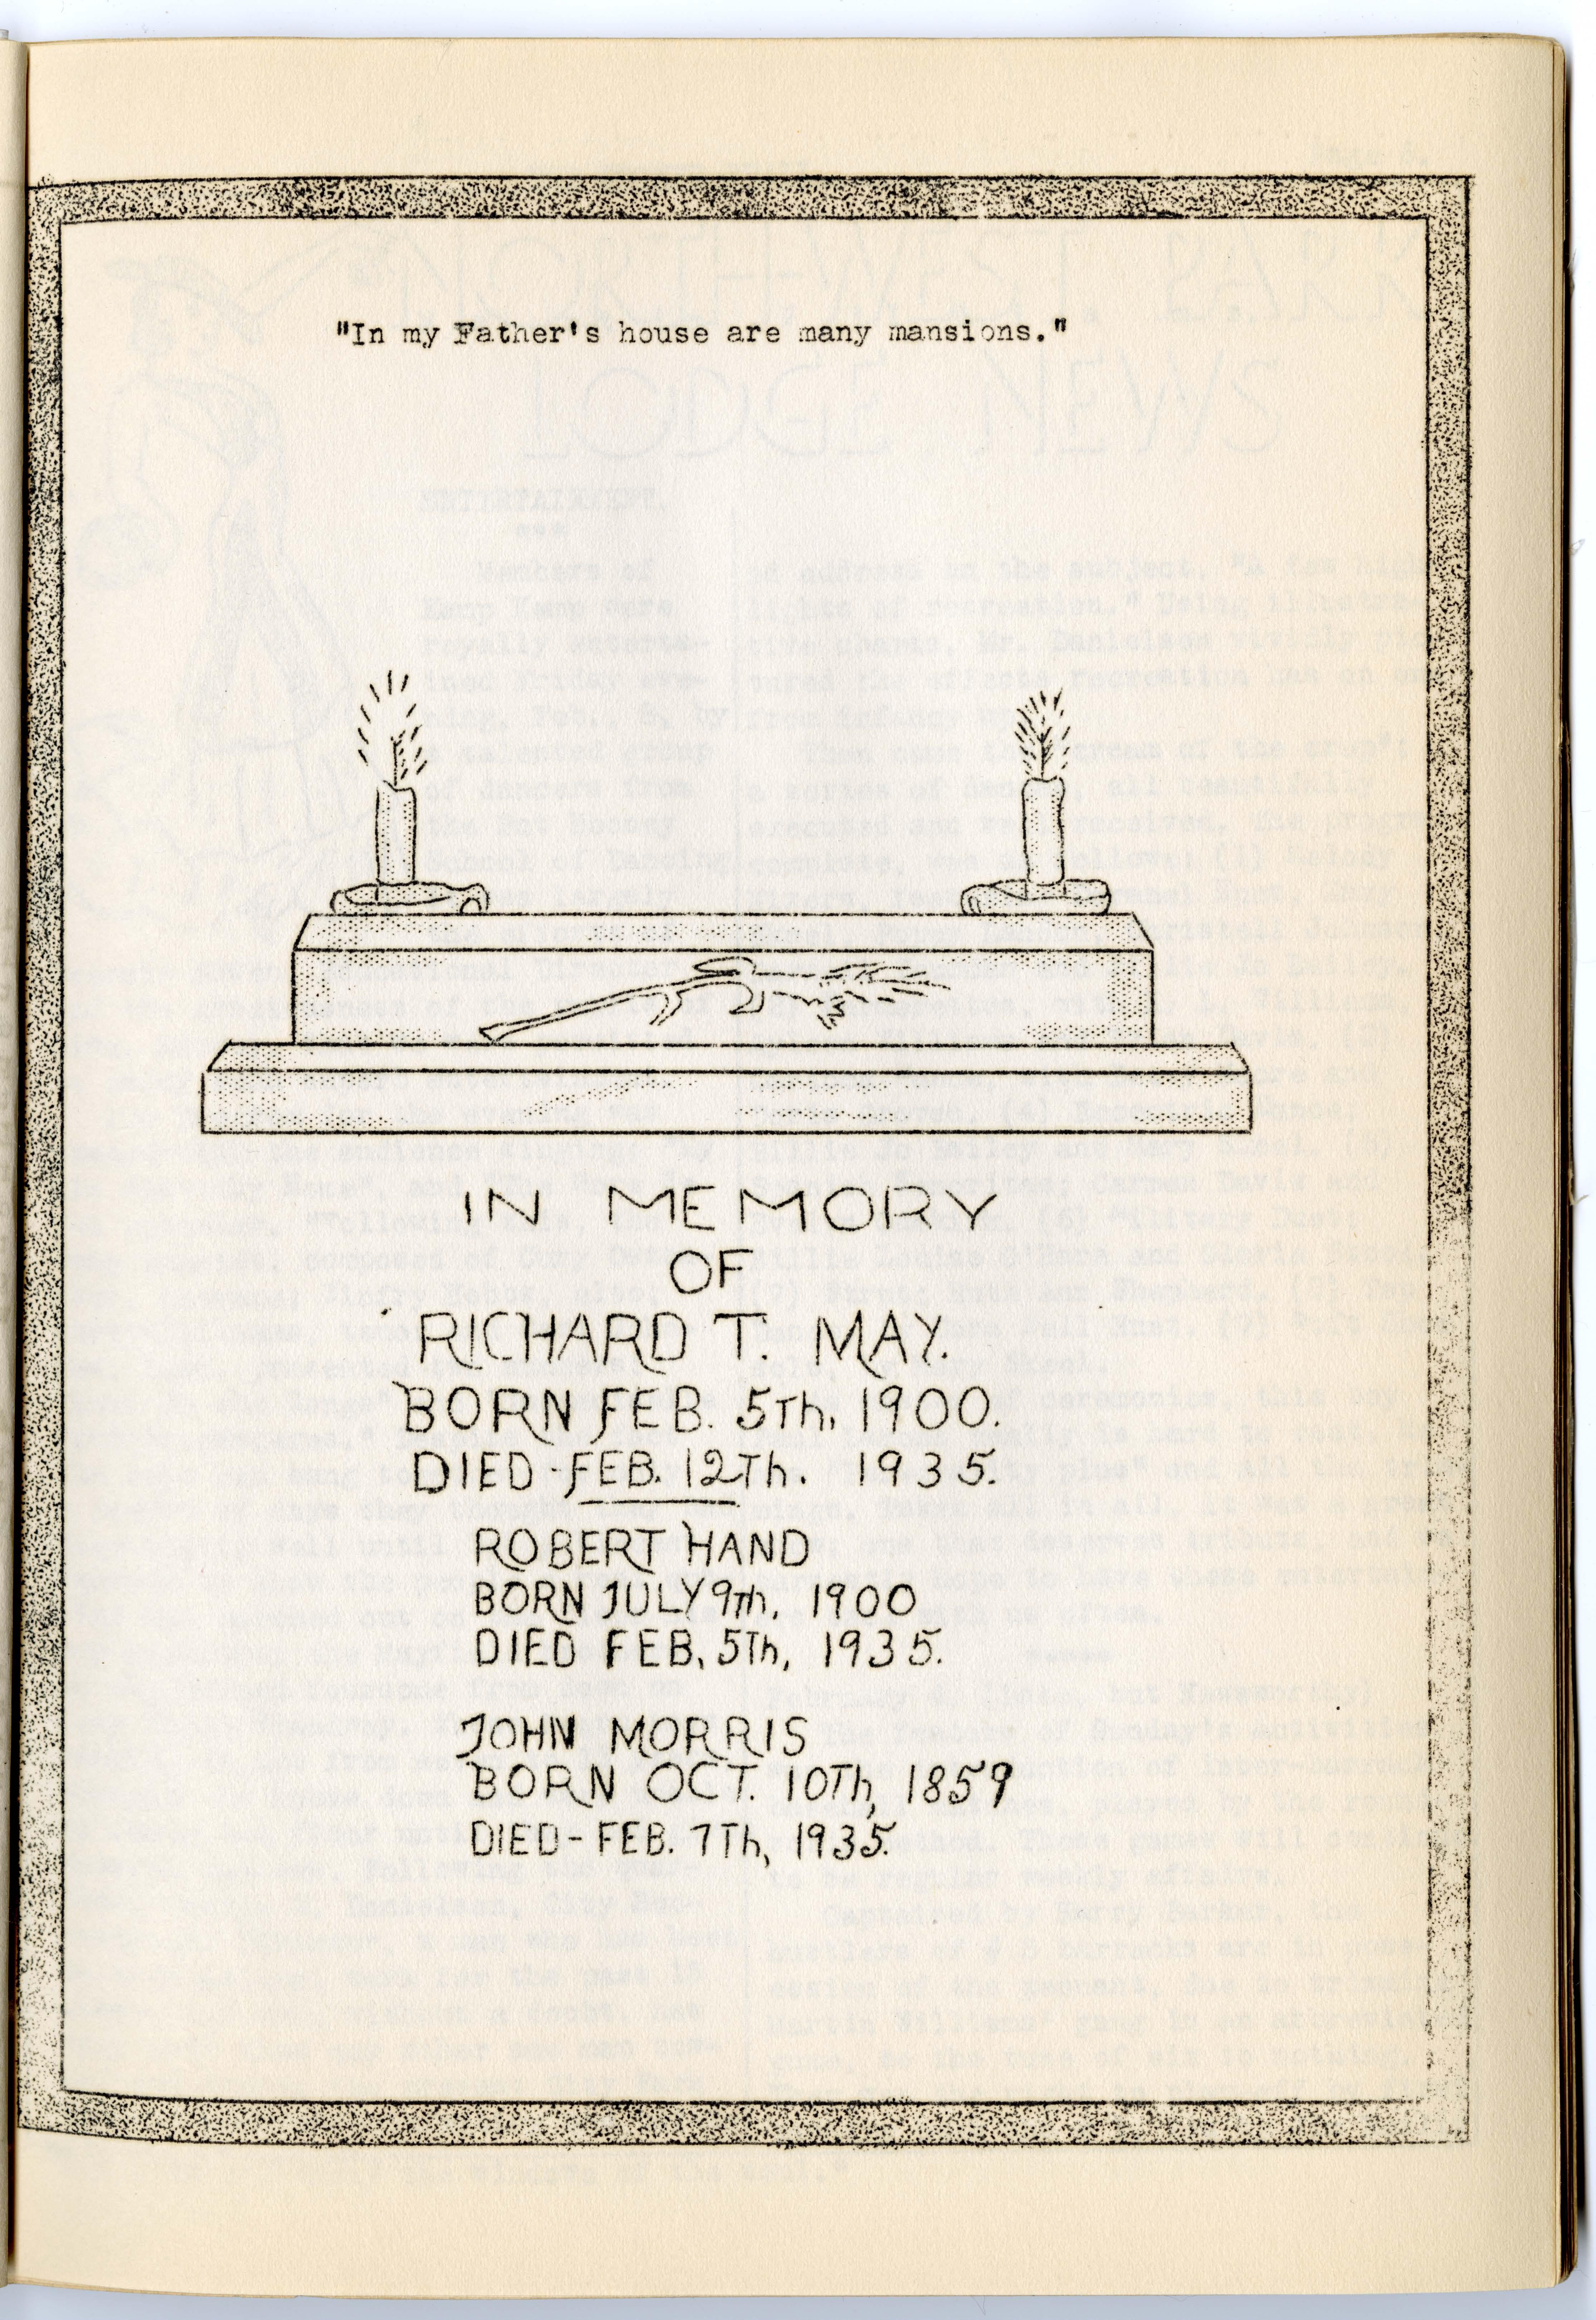 "In my Father's house are many mansions."
IN MEMORY
OF
RICHARD T. MAY.
BORN FEB. 5Th, 1900.
DIED - FEB. 12Th. 1935.
ROBERT HAND
BORN JULY 9Th, 1900
DIED FEB, 5Th, 1935.
JOHN MORRIS
BORN OCT. 10Th, 1859
DIED - FEB. 7Th, 1935.